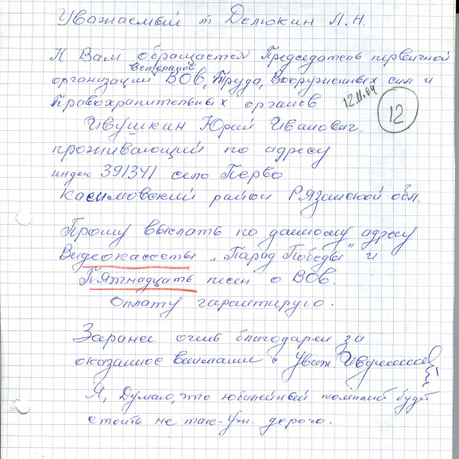 Уважаемый т Делюкин Л.Н.
К Вам обращается Председатель первичной
ветеранов
организации ВОВ, Труда, Вооруженных сил и
Правоохранительных органов
12.11.04
12
Ивушкин Юрий Иванович.
проживающий по адресу
индекс 391341 село Перво
Касимовский район Рязанской обл.
Прошу выслать по данному адресу
Видеокассеты „Парад Победы" и
Пятнадцать песен о ВОВ.
Оплату гарантирую.
Заранее очень благодарен за
оказанное внимание с Уваж. Ивушкин
Я, Думаю, что юбилейный комплект будет
стоить не так-уж дорого.